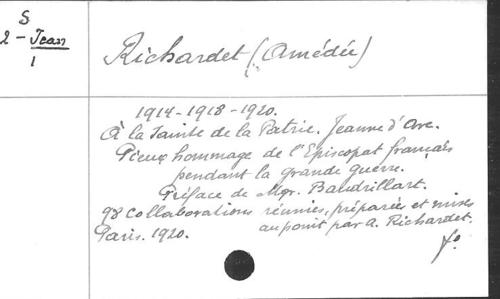 S
2 - Jean
1
Richardet (Amédée)
1914-1918-1920.
À la Sainte de la Patrie. Jeanne d'Arc.
Pieux hommage de l'Episcopat français
pendant la grande guerre.
Préface de Mgr. Baudrillart.
98 collaborations réunies, préparées et mises
au point par A. Richardet.
Paris. 1920.
fo